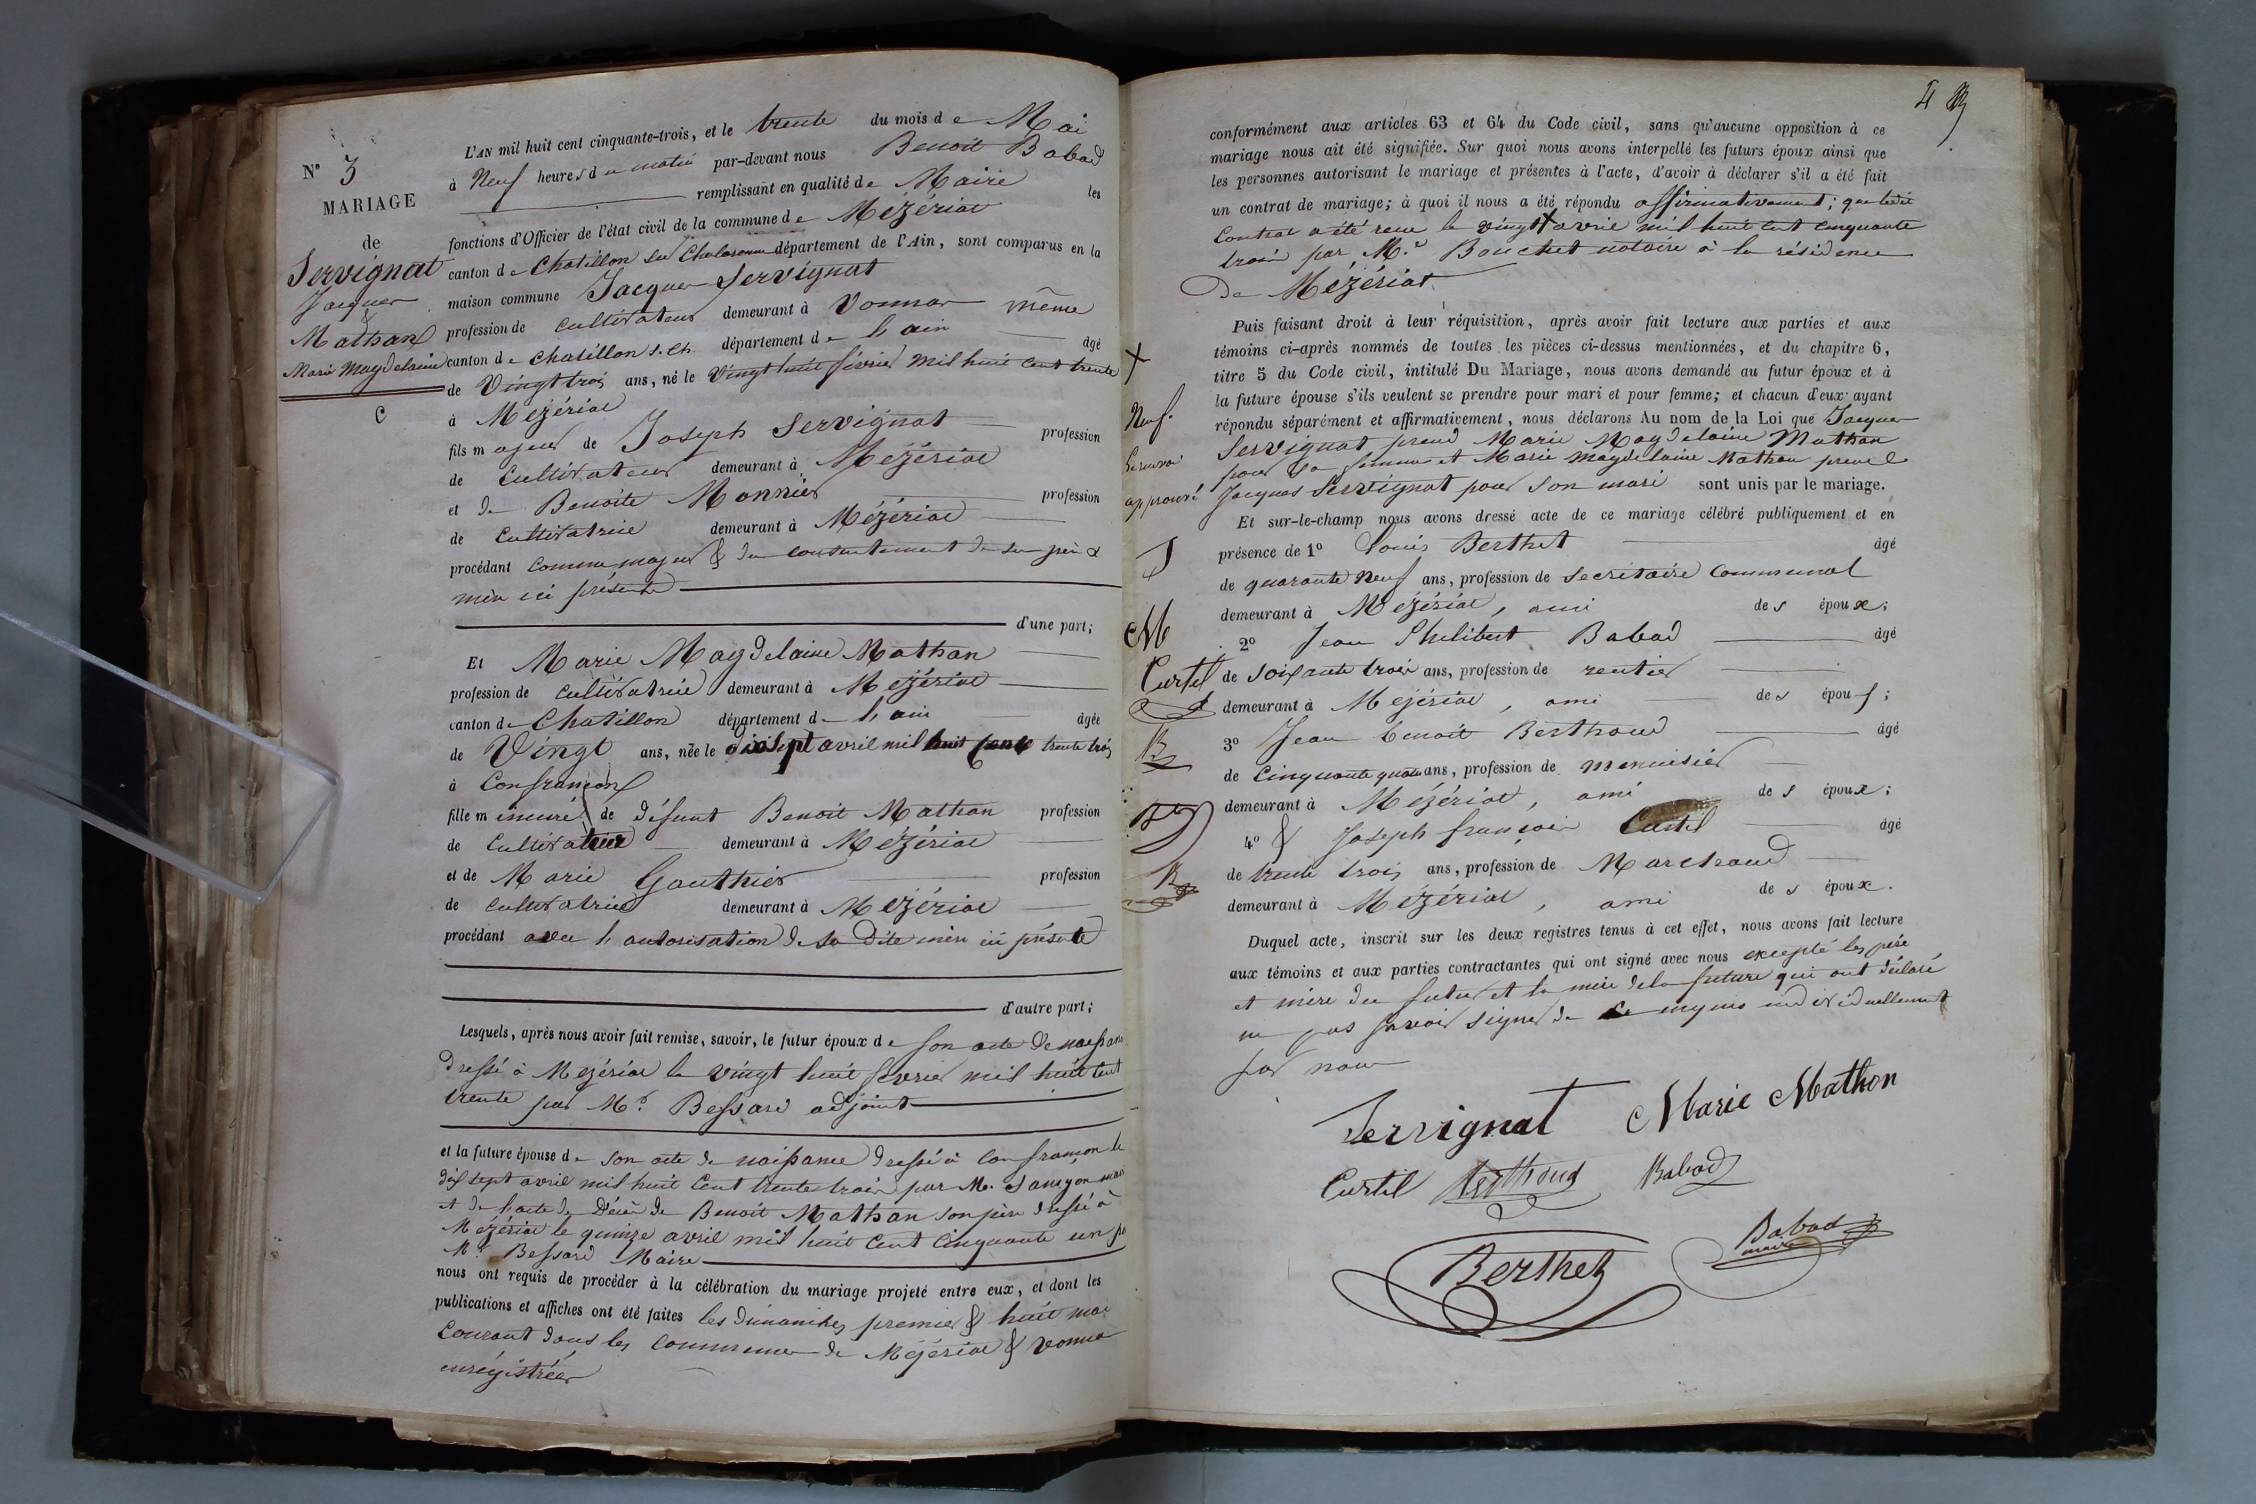 N° 3
MARIAGE
de
Servignat
Jacques
&
Mathan
Marie Magdelaine
C
L'AN mil huit cent cinquante-trois, et le trente du mois de Mai
à Neuf heures du matin par-devant nous Benoit Babad
remplissant en qualité de Maire les
fonctions d'Officier de l'état civil de la commune de Mézériat
canton de Chatillon sur Chalaronne département de l'Ain, sont comparus en la
maison commune Jacques Servignat
profession de cultivateur demeurant à Vonnas même
canton de chatillon s. Ch. département de l'ain âgé
de Vingt trois ans, né le Vingt huit février mil huit cent trente
à Mézériat
fils majeur de Joseph Servignat profession
de Cultivateur demeurant à Mézériat
et de Benoite Monnier profession
de Cultivatrice demeurant à Mézériat
procédant comme majeur & du consentement de ses père &
mère ici présents
d'une part;
Et Marie Magdelaine Mathan
profession de cultivatrice demeurant à Mézériat
canton de Chatillon département de l'ain âgée
de Vingt ans, née le dix sept avril mil huit cent trente trois
à Confrançon
fille mineure de défunt Benoit Mathan profession
de Cultivateur demeurant à Mézériat
et de Marie Gauthier profession
de cultivatrice demeurant à Mézériat
procédant avec l'autorisation de sa dite mère ici présente
d'autre part;
Lesquels, après nous avoir fait remise, savoir, le futur époux de son acte de naissance
dressé à Mézériat le vingt huit février mil huit cent
trente par Mr. Bessard adjoint
et la future épouse de son acte de naissance dressé à Confrançon le
dix sept avril mil huit Cent trente trois par M.
et de l'acte de décès de Benoit Mathan son père dressé à
Mézériat le quinze avril mil huit Cent Cinquante un par
Mr. Bessard Maire
nous ont requis de procéder à la célébration du mariage projeté entre eux, et dont les
publications et affiches ont été faites les dimanches premier & huit mai
Courant dans les communes de Mézériat & Vonnas
enrégistrées
4
conformément aux articles 63 et 64 du Code civil, sans qu'aucune opposition à ce
mariage nous ait été signifiée. Sur quoi nous avons interpellé les futurs époux ainsi que
les personnes autorisant le mariage et présentes à l'acte, d'avoir à déclarer s'il a été fait
un contrat de mariage; à quoi il nous a été répondu affirmativement; que ledit
Contrat a été reçu le vingt X avril mil huit cent cinquante
trois par Mr. Bouchet notaire à la résidence
De Mézériat.
Puis faisant droit à leur réquisition, après avoir fait lecture aux parties et aux
témoins ci-après nommés de toutes les pièces ci-dessus mentionnées, et du chapitre 6,
titre 5 du Code civil, intitulé Du Mariage, nous avons demandé au futur époux et à
la future épouse s'ils veulent se prendre pour mari et pour femme; et chacun d'eux ayant
répondu séparément et affirmativement, nous déclarons Au nom de la Loi que Jacques
Servignat prend Marie Magdelaine Mathan
pour sa femme et Marie Magdelaine Mathan prend
Jacques Servignat pour son mari sont unis par le mariage.
Et sur-le-champ nous avons dressé acte de ce mariage célébré publiquement et en
présence de 1° Louis Berthet âgé
de quarante Neuf ans, profession de secrétaire Communal
demeurant à Mézériat, ami des époux;
2° Jean Philibert Babad âgé
de soixante trois ans, profession de rentier
demeurant à Mézériat, ami des époux;
3° Jean Benoit Berthoud âgé
de cinquante quatre ans, profession de menuisier
demeurant à Mézériat, ami des époux;
4° & Joseph françois Curtil âgé
de trente trois ans, profession de Marchand
demeurant à Mézériat, ami des époux.
Duquel acte, inscrit sur les deux registres tenus à cet effet, nous avons fait lecture
aux témoins et aux parties contractantes qui ont signé avec nous excepté les père
et mère du futur et la mère de la future qui ont déclaré
ne pas savoir signer de ce enquis individuellement
par nous
X
Neuf.
le renvoi
approuvé
S
M
Curtil
B
B
Servignat Marie Mathon
Curtil Berthoud Babad
Berthet
Babad
maire